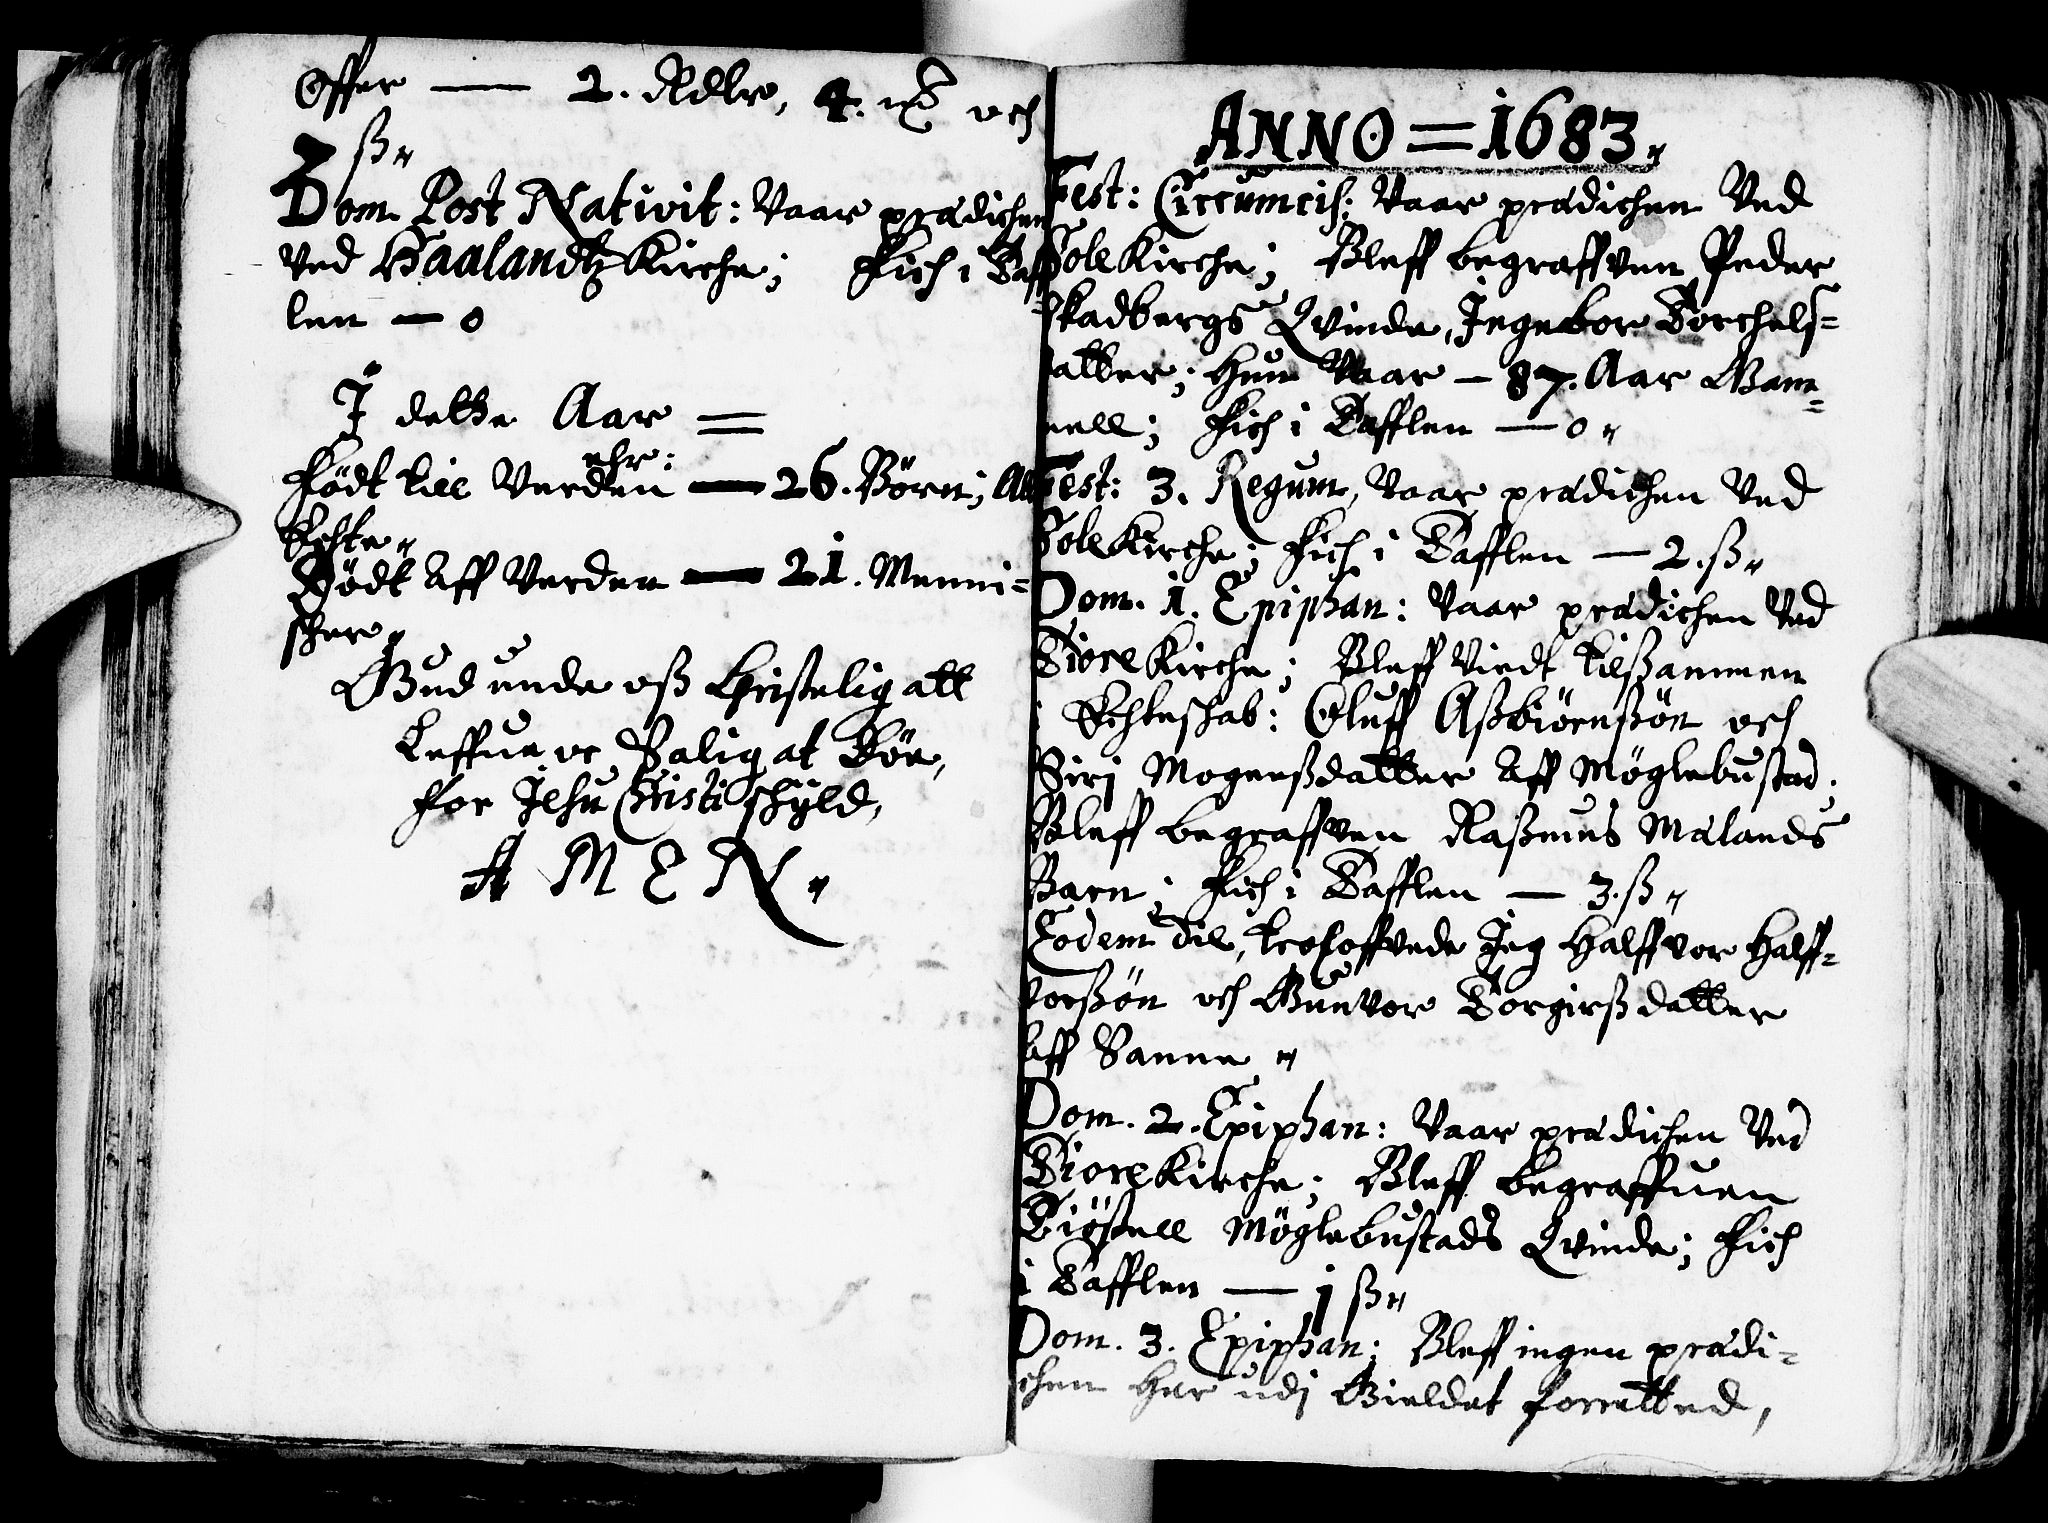 Offer — 2. Rdlr, 4. mꝶ och
2 ß„
Dom. Post Nativit: Vaar prædichen
Ved Haalandtz Kirche; Fich i Taff
len — 0
I dette Aar =
ehr:
Födt till Verden — 26. Börn; All
Echte„
Dödt Aff Verden — 21. Menni-
scher„
Gud unde oß Christelig att
Leffue oc Salig at Döe,
For Jesu Christi schÿld,
AMEN„
ANNO = 1683„
Fest: Circumcis: Vaar prædichen Ved
Sole Kirche; Bleff begraffven Peder
Skadbergs Qvinde, Ingebor Torchels-
datter; Hun Vaar — 87. Aar Gam-
mell; Fich i Tafflen — 0„
Fest: 3. Regum, Vaar prædichen Ved
Sole Kirche; Fich i Tafflen — 2. ß„
Dom. 1. Epiphan: Vaar prædichen Ved
Tiore Kirche; Bleff Viedt tilßammen
i Echteschab: Oluff Aßbiörnßön och
Siri Mogenßdatter Aff Möglebustad.
Bleff begraffven Raßmus Mælands
Barn; Fich i Tafflen — 3. ß„
Eodem die, troloffvede Jeg Halffvor Halff-
vorßön och Gunvor Torgirßdatter
Aff Sanne„
Dom. 2. Epiphan: Vaar prædichen Ved
Tiore Kirche; Bleff begraffuen
Tiößell Möglebustads Qvinde; Fich
i Tafflen — 1 ß„
Dom. 3. Epiphan: Bleff ingen prædi-
chen her udj Gieldet forretted,